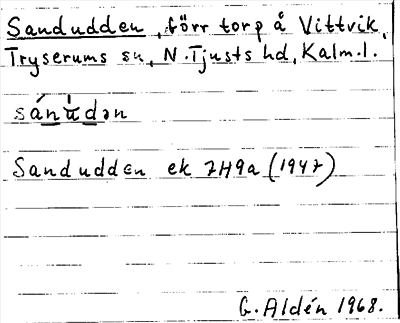 Sandudden, förr torp å Vittvik,
Tryserums sn, N. Tjusts hd, Kalm.l.
Sandudden ek 7H9a (1947)
G. Aldén 1968.